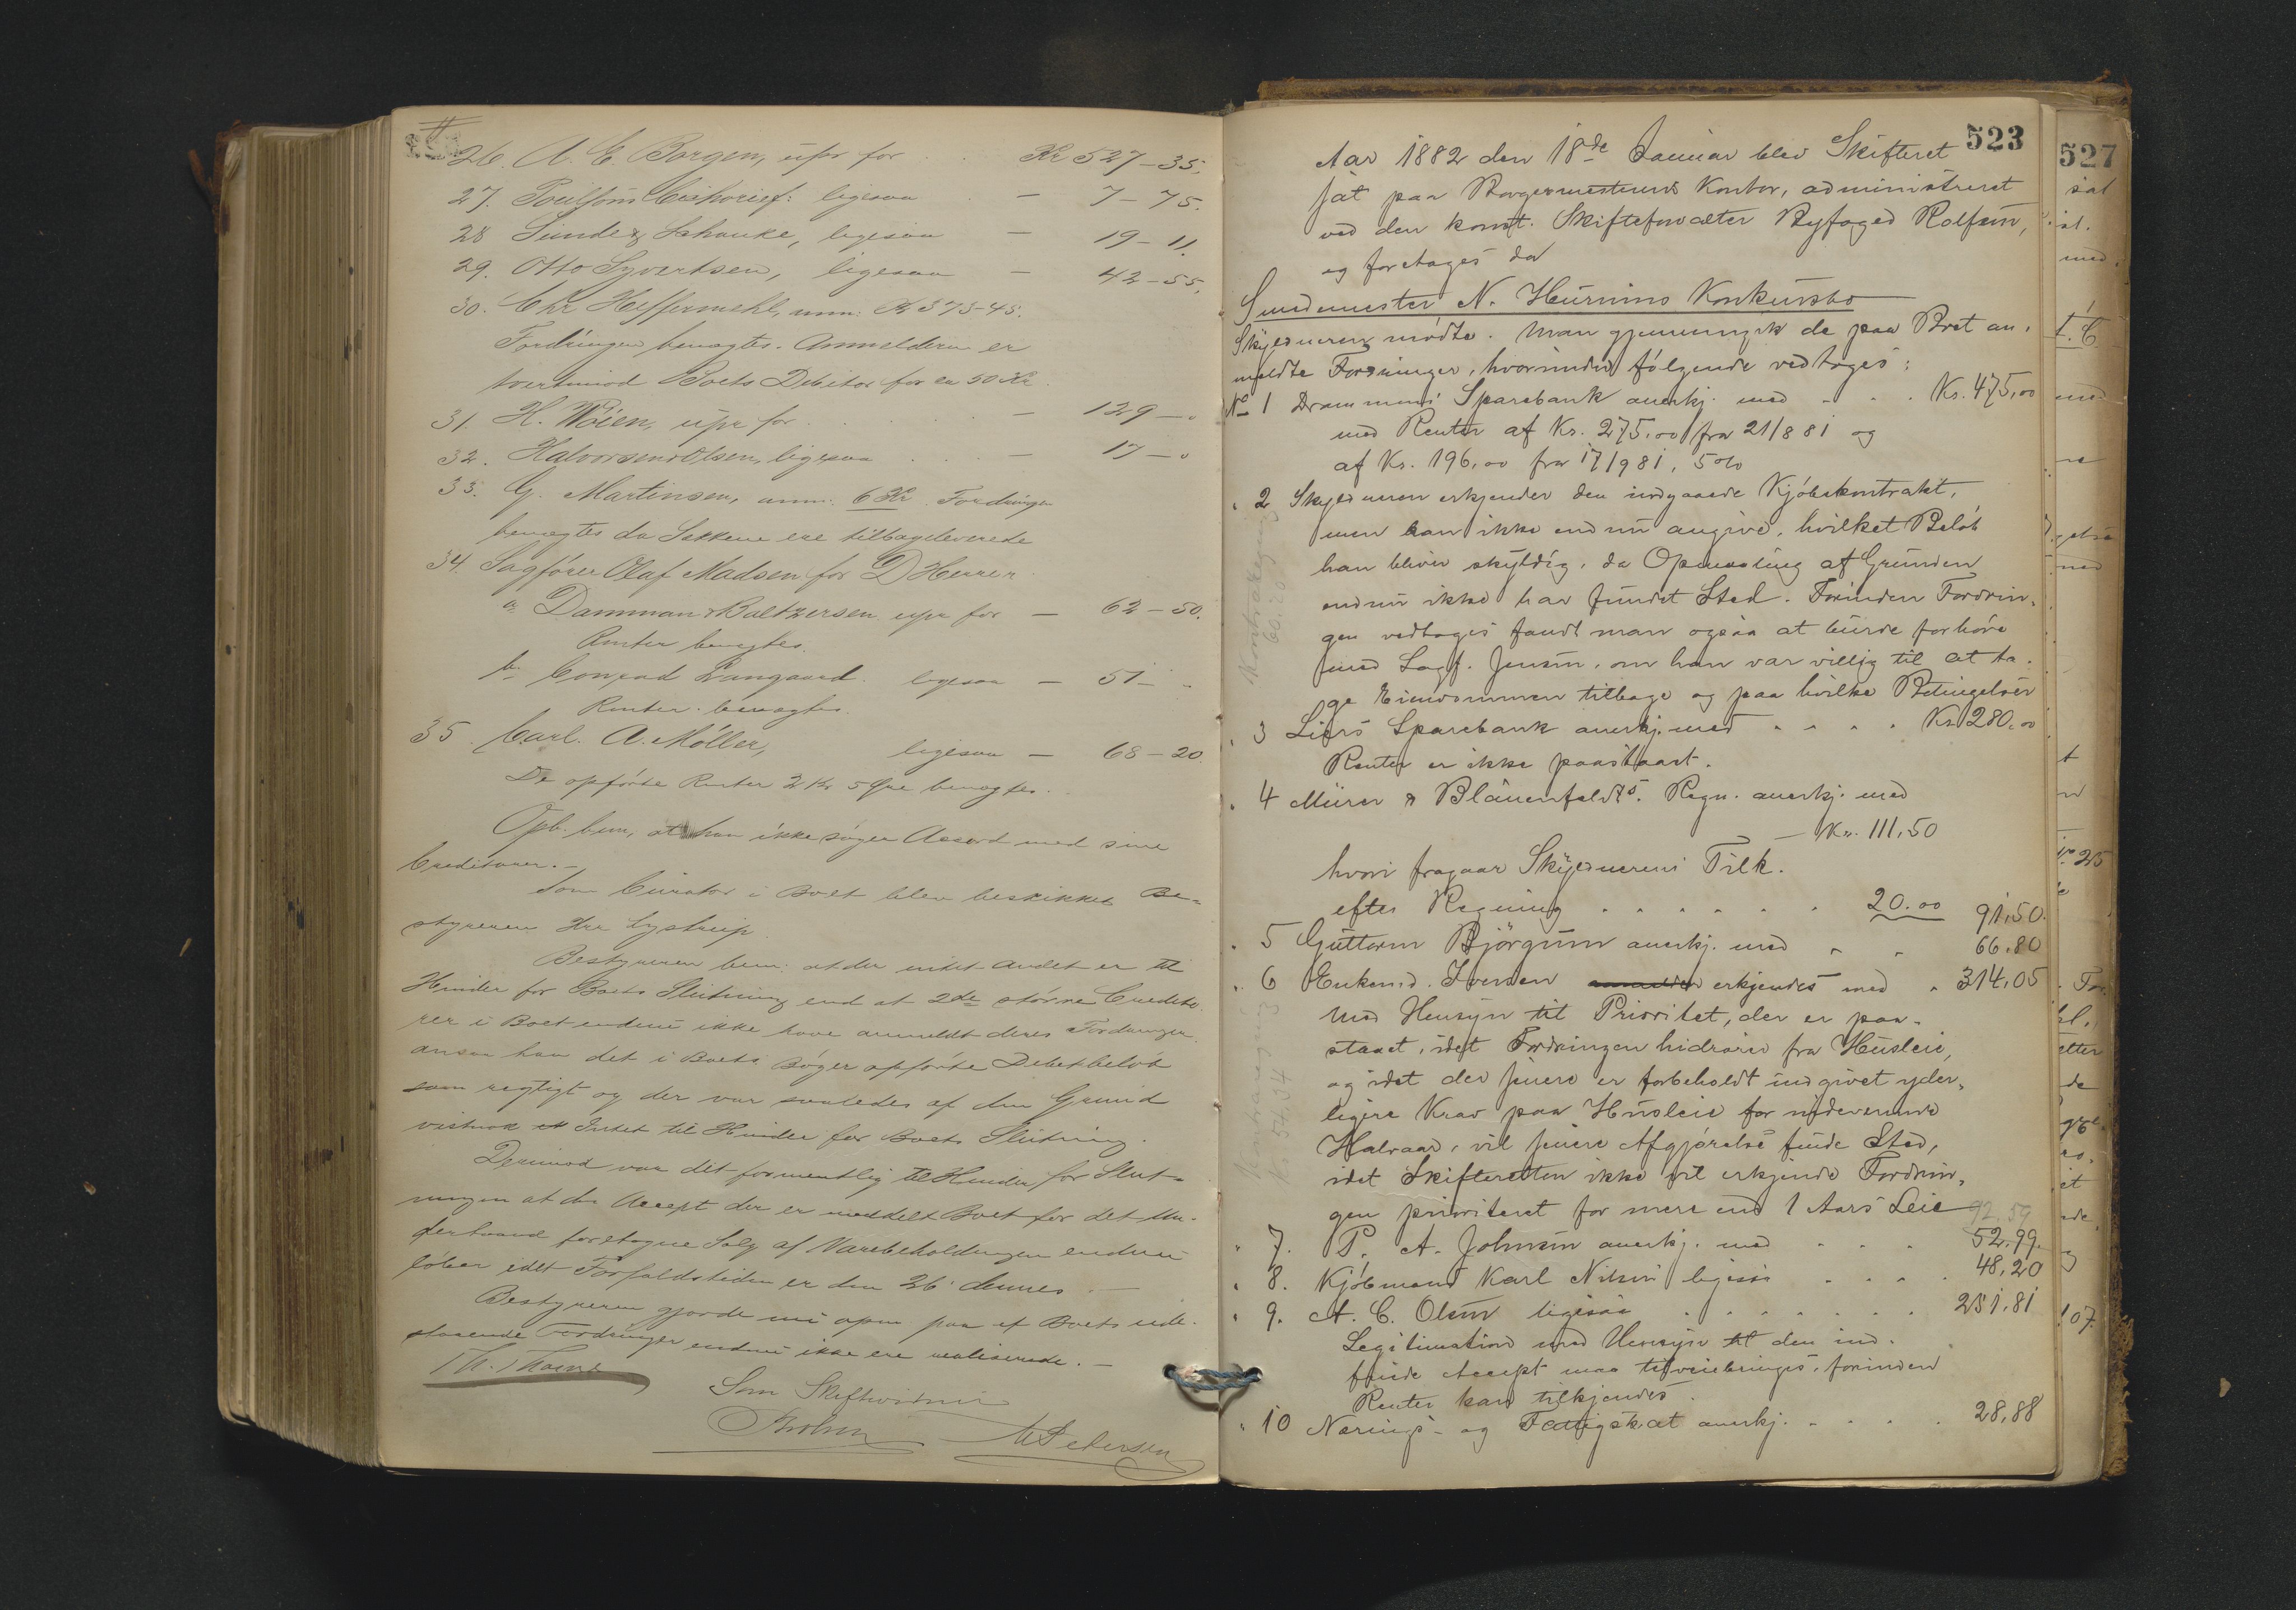 26. A. E. Borgen, upr for . . Kr 527-35.
27. Poulsens Cichorief: ligesaa . — 7-75.
28 Sunde & Schanke, ligesaa — 19-11.
29. Otto Syvertsen, ligesaa — 42-55.
30. Chr Heffermehl, anm: Kr 373-45.
Fordringen benægtes. Anmelderen er
tvertimod Boets Debitor for ca 50 Kr.
31. H. Wöien, upr for . . . — 129-"
32. Halvorsen & Olsen, ligesaa . . — 17-"
33. G. Martinsen, anm: 6 Kr. Fordringen
benægtes da Sækkene ere tilbageleverede
34. Sagfører Olaf Madsen for D'Herrer
a Damman & Baltzersen upr for — 62-50.
Renter benægtes.
b Conrad Langaard. ligesaa — 51- "
Renter benægtes.
35. Carl. A. Möller, ligesaa — 68-20.
De opførte Renter 2 Kr 5 Øre benægtes.
Opb. bem, at han ikke søger Accord med sine
Creditorer.—
Som Curator i Boet blev beskikket Be-
styreren Hr Lystrup.
Bestyreren bem: at der intet andet er til
Hinder for Boets Slutning end at 2de større Credito
rer i Boet endnu ikke have anmeldt deres Fordringer
ansaa han det i Boets Bøger opførte Debetbeløb
som rigtigt og der var saaledes af den Grund
vistnok Intet til Hinder for Boets Slutning.
Derimod var det formentlig til Hinder for Slut-
ningen at den Accept der er meddelt Boet for det Un-
derhaand foretagne Salg af Varebeholdningen endnu
løber idet Forfaldstiden er den 26' dennes.—
Bestyreren gjorde nu opm. paa at Boets ude-
staaende Fordringer endnu ikke ere realiserede.—
Som Skiftevidner
M Petersen
523
Aar 1882 den 18de Januar blev Skifteret
sat paa Borgermesterens Kontor, administreret
ved den konst. Skifteforvalter Byfoged Rolfsen,
og foretoges da
Smedemester N. Hurums Konkursbo
Skyldneren mødte. Man gjennemgik de paa Boet an-
meldte Fordringer, hvorunder følgende vedtoges:
No 1 Drammens Sparebank anerkj. med . . . Kr. 475,00
med Renter af Kr. 275,00 fra 21/8 81 og
af Kr. 196,00 fra 17/9 81, 5%
" 2 Skyldneren erkjender den indgaaede Kjøbekontrakt,
men kan ikke endnu angive, hvilket Beløb
han bliver skyldig, da Opmaaling af Grunden
endnu ikke har fundet Sted. Forinden Fordrin-
gen vedtages fandt man ogsaa at burde forhøre
med Sagf. Jensen, om han var villig til at ta-
ge Eiendommen tilbage og paa hvilke Betingelser
" 3 Liers Sparebank anerkj. med . . . . Kr 280,00
Renter er ikke paastaaet.
" 4 Mürer & Blauenfeldts. Regn. anerkj. med
— Kr. 111,50
hvori fragaar Skyldnerens Tilk.
efter Regning . . . . . . 20.00 91,50.
" 5 Guttorm Bjørgum anerkj. med . . 66.80
" 6 Enkemd. Iversen erkjendes med " 314,05
Med Hensyn til Prioritet, der er paa-
staaet, idet Fordringen hidrører fra Husleie,
og idet der senere er forbeholdt indgivet yder-
ligere Krav paa Husleie for nuværende
Halvaar, vil senere Afgjørelse finde Sted,
idet Skifteretten ikke vil erkjende Fordrin-
gen prioriteret for mere end 1 Aars Leie
92,59
" 7. P. A. Johnsen anerkj. med . . . 52.99.
" 8. Kjøbmand Karl Nilsen ligesaa . . . . 48,20
" 9. A. C. Olsen ligesaa . . . . . . . 251,81
Legitimation med Hensyn til den ind-
friede Accept maa tilveiebringes, forinden
Renter kan tilkjendes.
" 10 Nærings- og Fattigskat anerkj. . . . . . 28,88
527